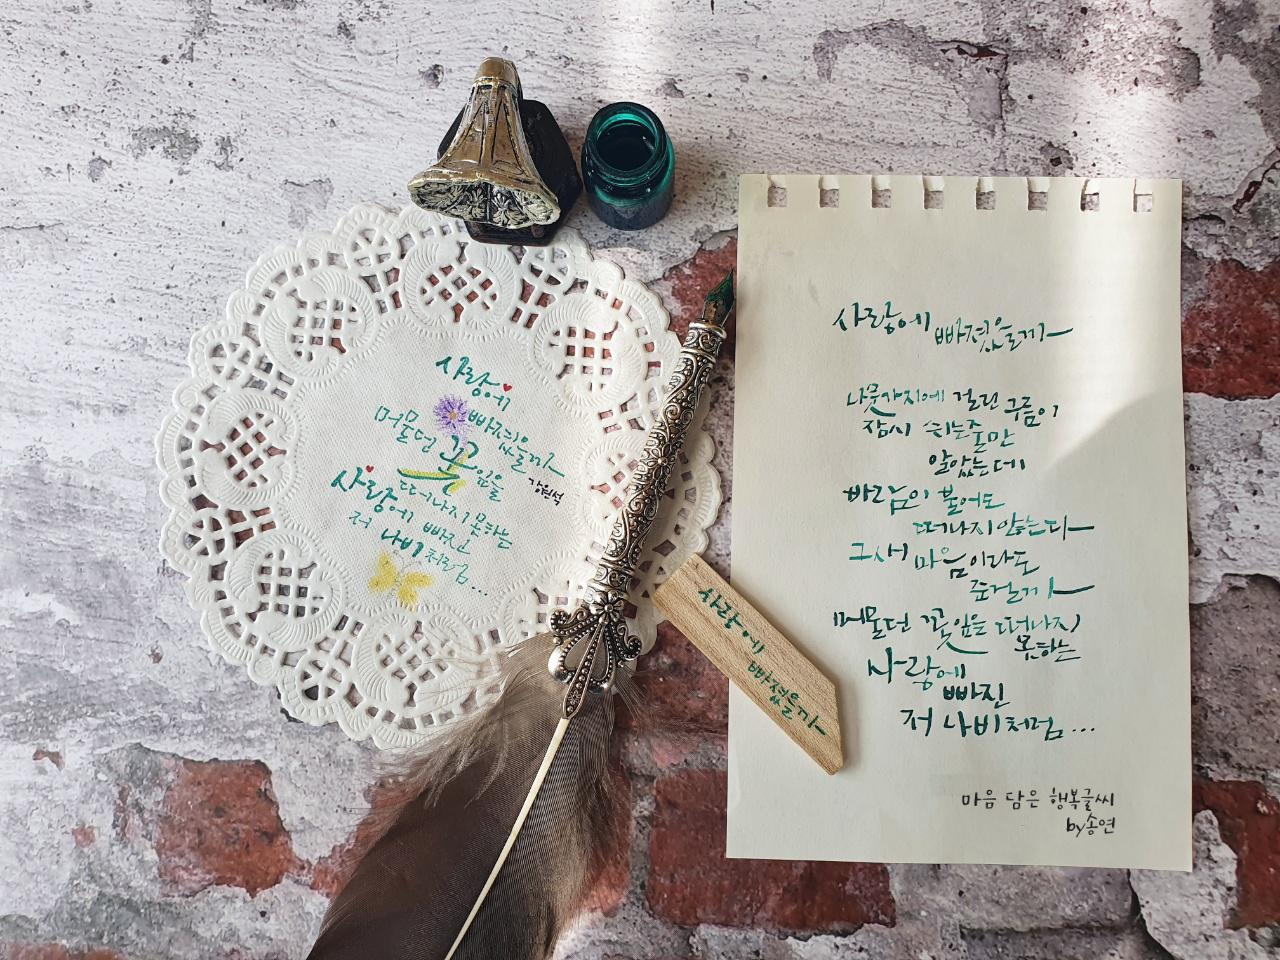 사랑에
빠졌을까
머물던 꽃잎을
강원석
떠나지 못하는
사랑에 빠진
저 나비처럼...
사랑에 빠졌을까
사랑에 빠졌을까
나뭇가지에 걸린 구름이
잠시 쉬는줄만
알았는데
바람이 불어도
떠나지 않는다
그새 마음이라도
준걸까
머물던 꽃잎을 떠나지
못하는
사랑에
빠진
저 나비처럼...
마음 담은 행복글씨
by송연